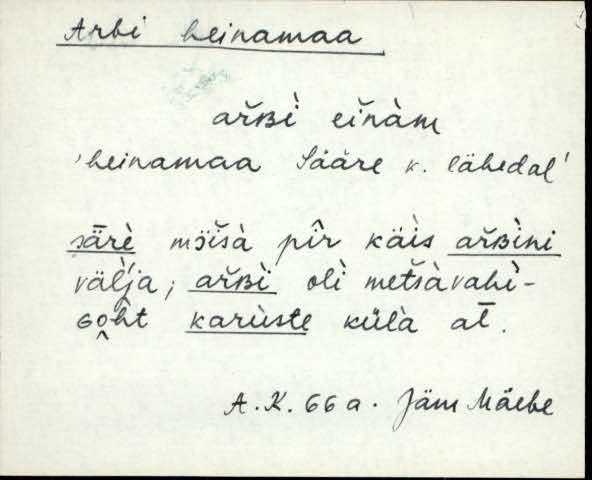 Arbi heinamaa
ařʙì eǐǹàm
'heinamaa Sääre k. lähedal'
sǟrè mȫìsà pîr käìs ařʙìni
väĺja, ařʙì olì metšàvahì-
goht karùste külà at̄.
A.K. 66 a. Jäm Mäebe